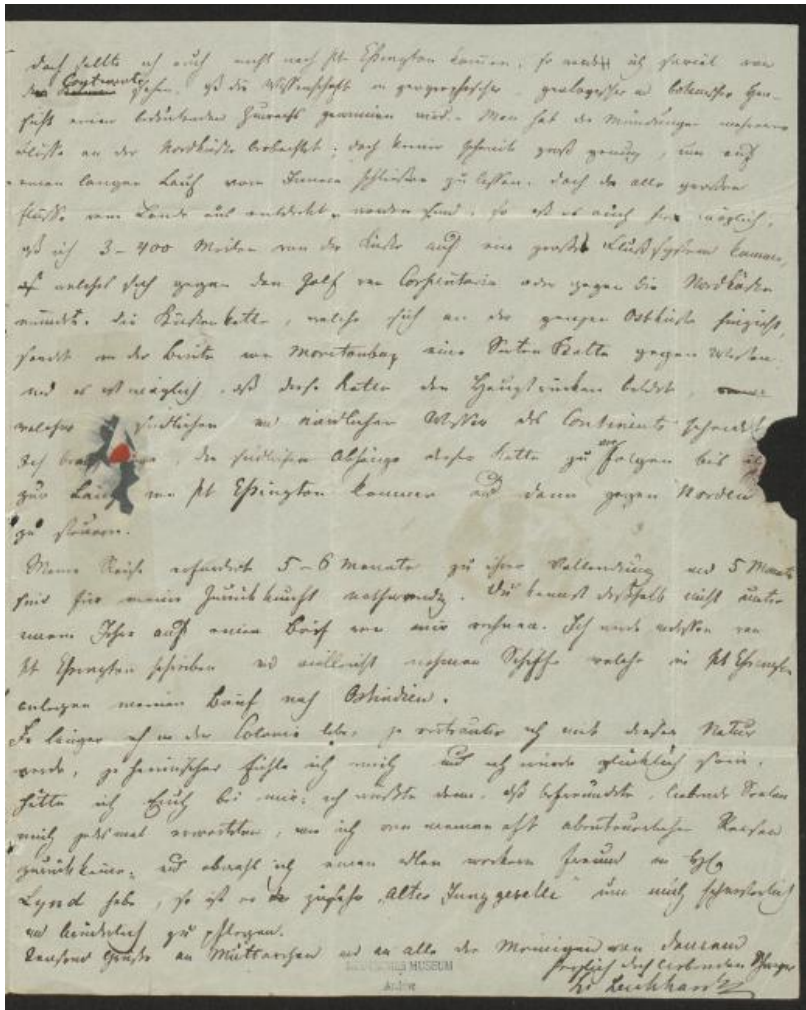 doch sollte ich auch nicht nach Pt Essington kommen, so werde ich soviel von
dem Continente sehen, daß die Wissenschaft in geographischer, geologischer u botanischer Hin-
sicht einen bedeutenden Zuwachs gewinnen wird. Man hat die Mündungen mehrerer
Flüsse an der Nordküste beobachtet; doch keiner scheint groß genug, um auf
einen langen Lauf vom Innern schließen zu lassen. Doch da alle großen
Flüsse vom Lande aus entdeckt worden sind, so ist es auch hier möglich,
daß ich 3-400 Meilen von der Küste auf ein großes Flußsystem komme,
welches sich gegen den Golf von Carpentaria oder gegen die Nordküste
mündet. Die Küstenkette, welche sich an der ganzen Ostküste hinzieht,
sendet in der Breite von Moretonbay eine Seiten Kette gegen Westen
und es ist möglich, daß diese Kette den Hauptrücken bildet,
welcher südlichen und nördlichen Wasser des Continents scheidet
Ich, die südlichen Abhänge dieser Kette zu verfolgen bis ich
zur von Pt Essington komme und dann gegen Norden
zu steuern.
Meine Reise erfordert 5-6 Monate zu ihrer Vollendung und 5 Monate
sind für meine Zurückkunft nothwendig. Du kannst deßhalb nicht unter
einem Jahre auf einen Brief von mir rechnen. Ich werde indessen von
Pt Essington schreiben und vielleicht nehmen Schiffe welche in Pt Essington
anlegen meinen Brief nach Ostindien.
Je länger ich in der Colonie lebe, je vertrauter ich mit dieser Natur
werde, je heimischer fühle ich mich und ich würde glücklich sein,
hätte ich Euch bei mir; ich wüßte dann, daß befreundete, liebende Seelen
mich jedesmal erwarteten, wenn ich von meinen oft abenteuerlichen Reisen
zurückkäme; und obwohl ich einen edlen wackern Freund an
Lynd habe, so ist er zu sehr "alter Junggeselle" um mich schwesterlich
und brüderlich zu pflegen.
Tausend Grüße an Mütterchen und an alle die Meinigen von Deinem
herzlich dich liebenden Schwager
L. Leichhardt
DEUTSCHES MUSEUM
Archiv